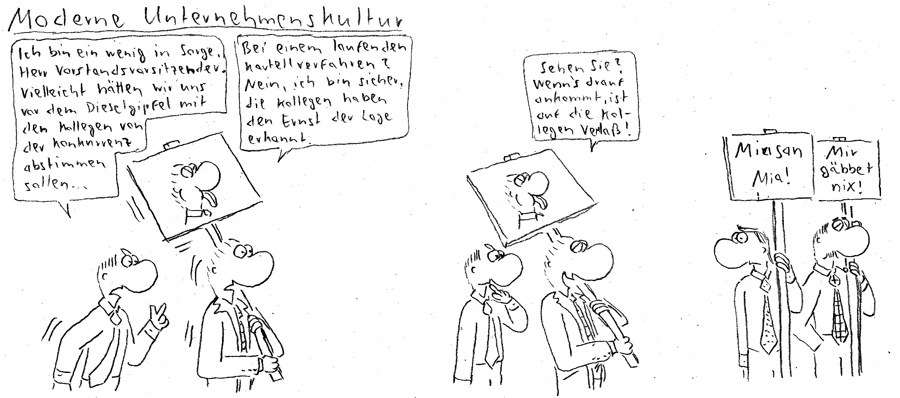 Moderne Unternehmenskultur
Ich bin ein wenig in Sorge,
Herr Vorstandsvorsitzender.
Vielleicht hätten wir uns
vor dem Dieselgipfel mit
den Kollegen von
der Konkurrenz
abstimmen
sollen...
Bei einem laufenden
Kartellverfahren?
Nein, ich bin sicher,
die Kollegen haben
den Ernst der Lage
erkannt.
Sehen Sie?
Wenn's drauf
ankommt, ist
auf die Kol-
legen Verlaß!
Mia san
Mia!
Mir
gäbbet
nix!